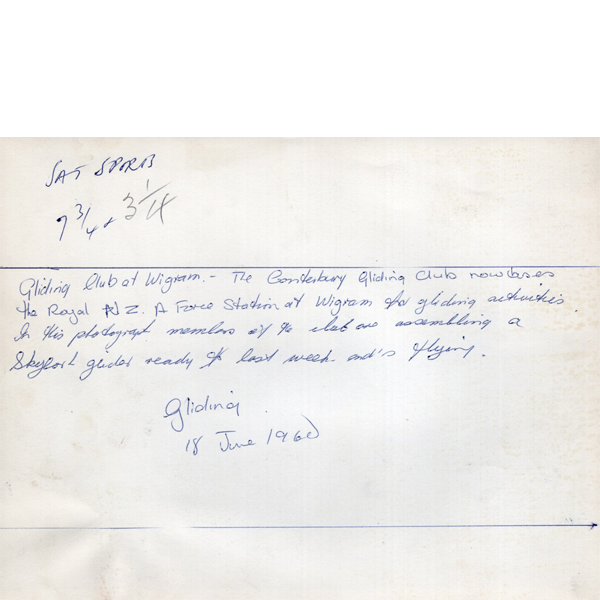 SAT SPORTS
7 3/4 x 3 1/4
Gliding Club at Wigram. - The Canterbury Gliding Club now uses
the Royal N Z. A Force Station at Wigram for gliding activities.
In this photograph members of the club are assembling a
glider ready for last week-end's flying.
Gliding
18 June 196